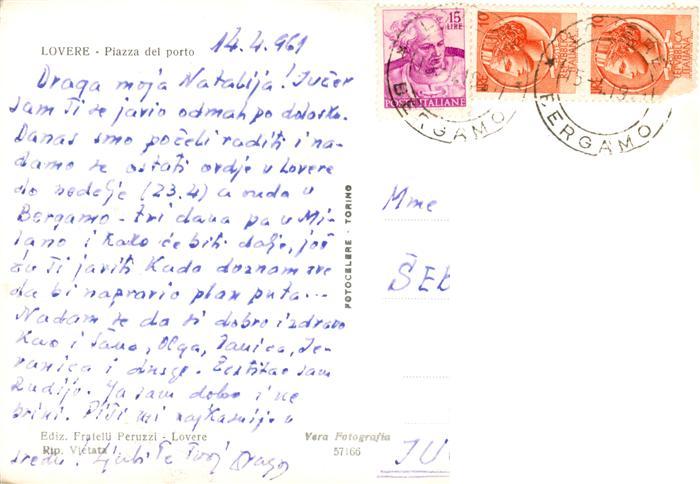 LOVERE - Piazza del porto 14.4.961
Draga moja Natalija! Jučer
sam Ti se javio odmah po dolasku.
Danas smo počeli raditi i na-
damo se ostati ovdje u Lovere
do nedelje (23.4) a onda u
Bergamo - tri dana pa u Mi-
lano i kako će biti dalje, još
ću Ti javiti kada doznam sve
da bi napravio plan puta...
Nadam se da si dobro i zdravo
kao i Olga, Je-
vanica i druge. sam
Ja sam dobro i ne
brini. Piši mi najkasnije u
sredu! Ljubi Te Tvoj Dragoj
Ediz. Fratelli Peruzzi - Lovere
Rip. Vietata
Vera Fotografia
57166
FOTOCELERE - TORINO
15
LIRE
POSTE ITALIANE
10
BERGAMO
BERGAMO
Mme
ŠEK
JU